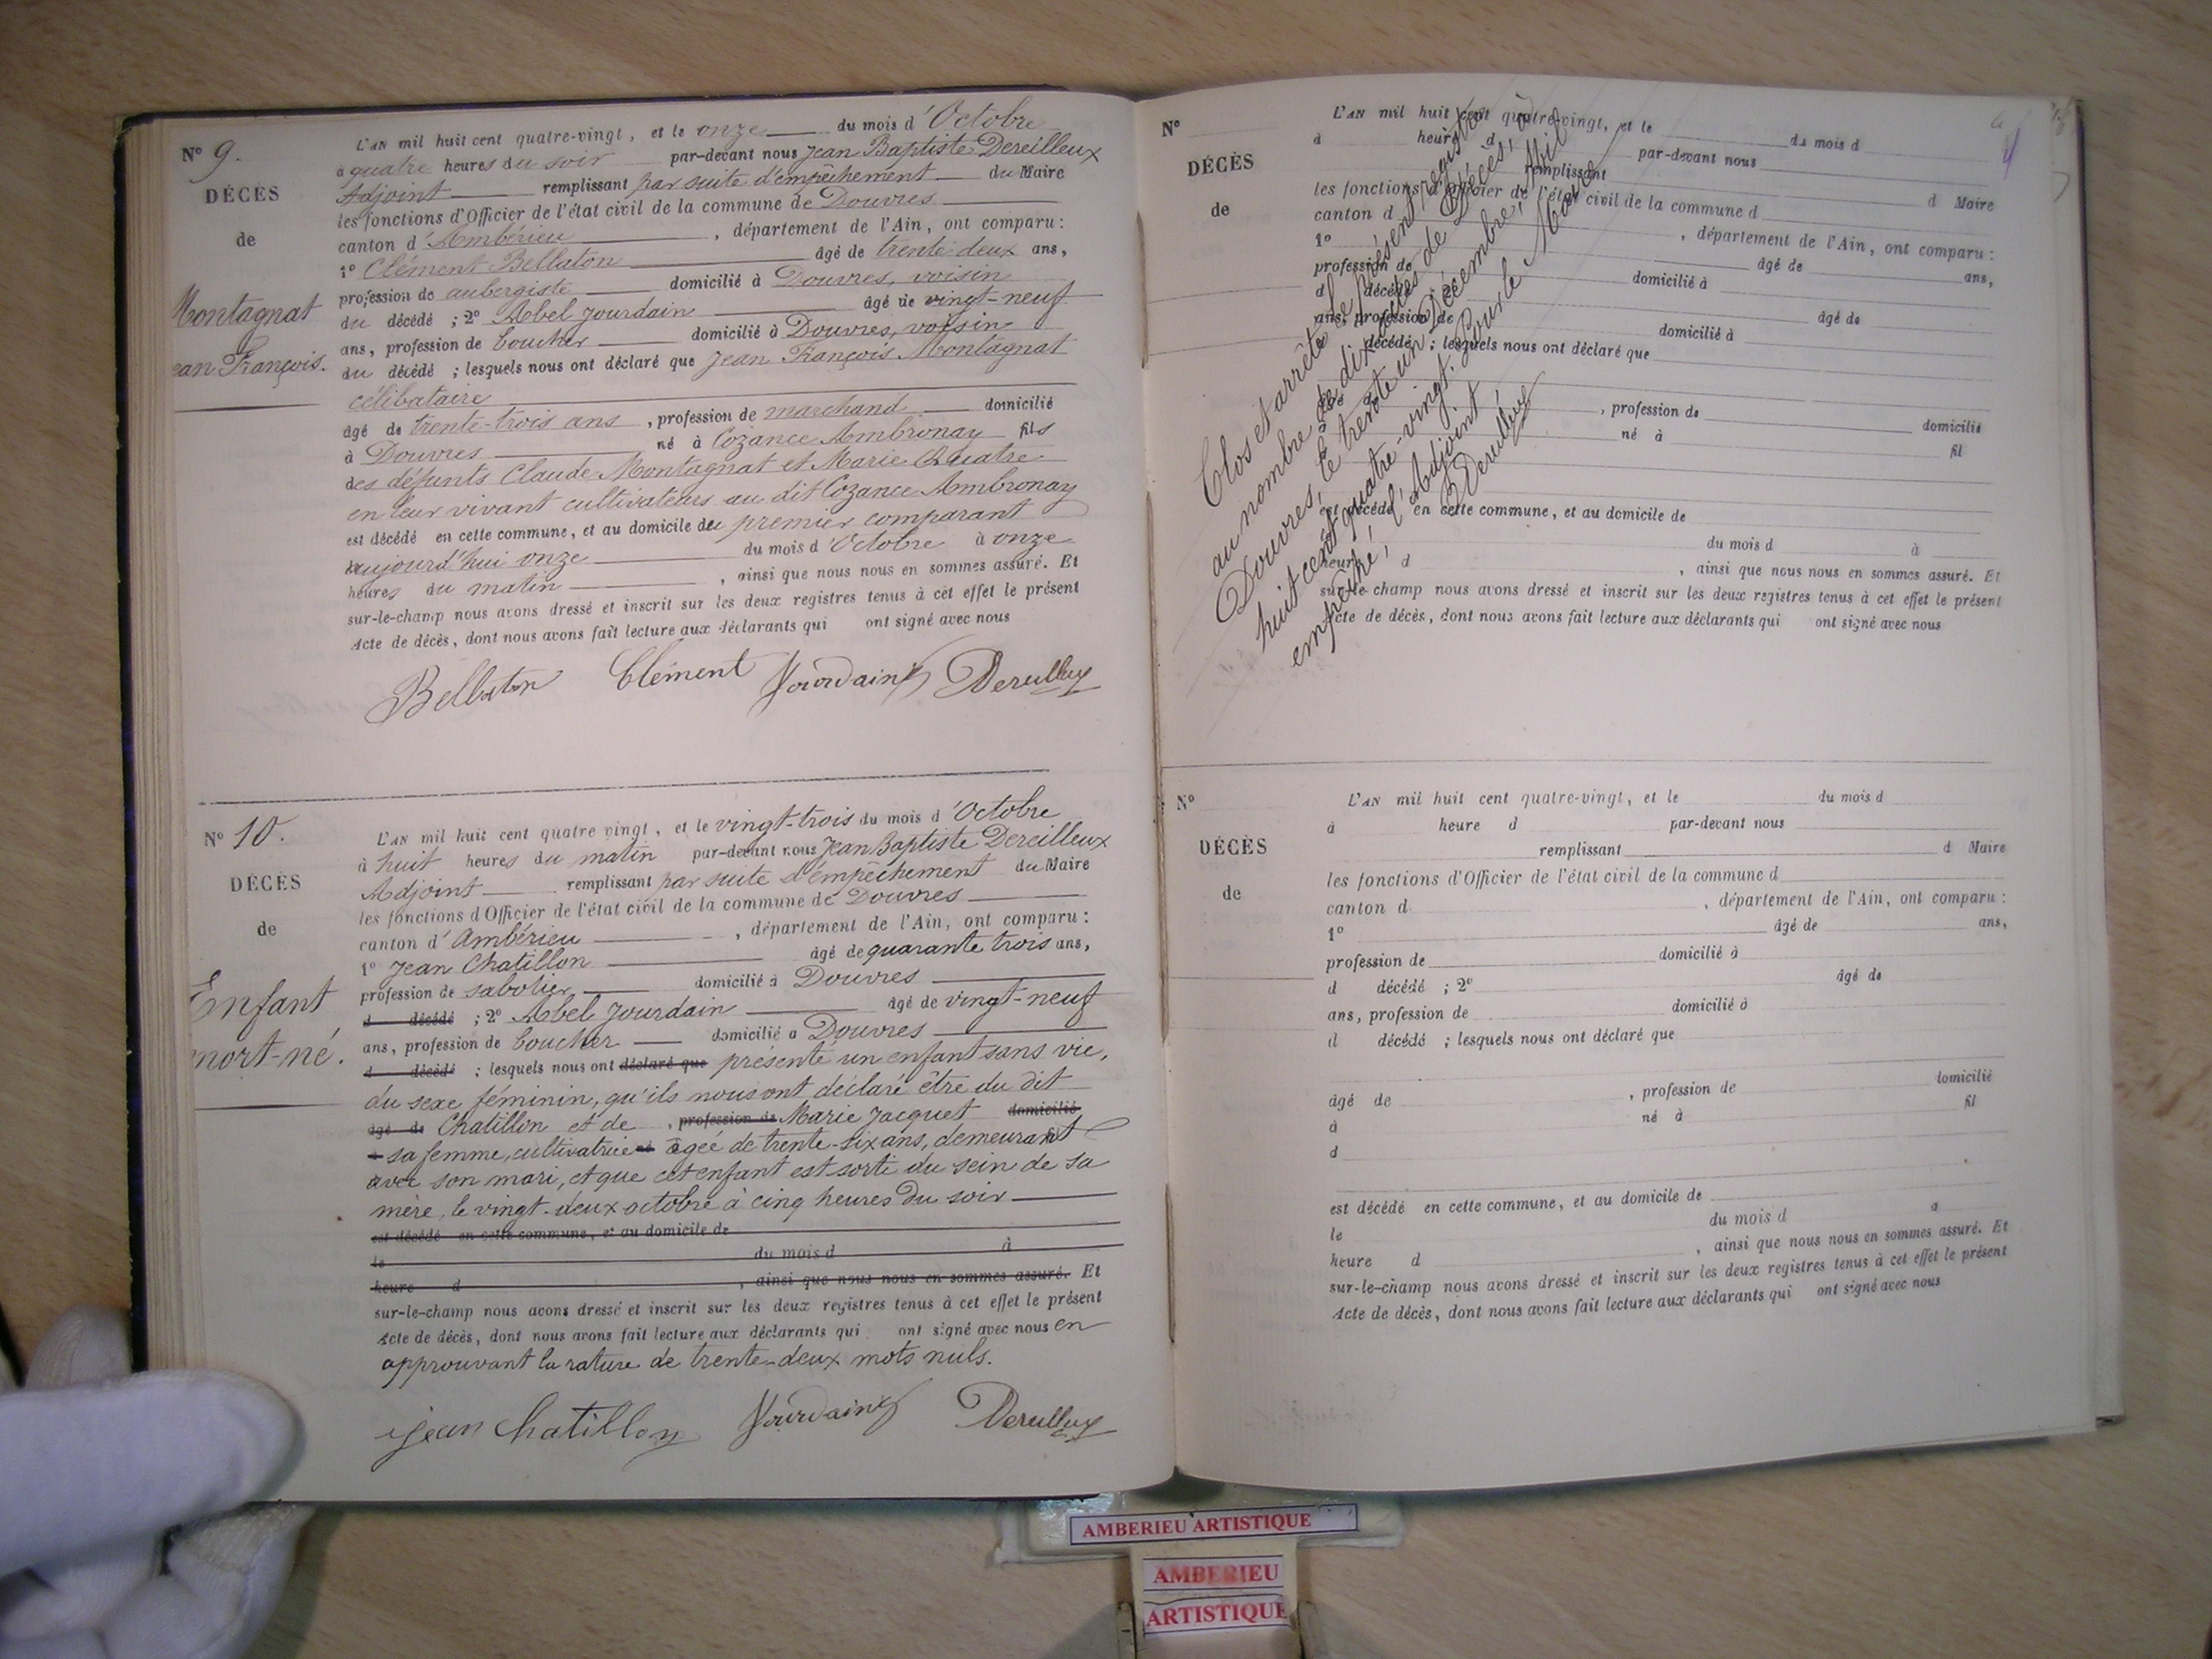 N° 9.
DÉCÈS
de
Montagnat
ean François.
L'AN mil huit cent quatre-vingt, et le onze du mois d'Octobre
à quatre heures du soir par-devant nous Jean Baptiste Dereilleux
Adjoint remplissant par suite d'empêchement du Maire
les fonctions d'Officier de l'état civil de la commune de Douvres
canton d'Ambérieu, département de l'Ain, ont comparu :
1° Clément Bellaton âgé de trente deux ans,
profession de aubergiste domicilié à Douvres, voisin
du décédé ; 2° Abel Jourdain âgé de vingt-neuf
ans, profession de boucher domicilié à Douvres, voisin
du décédé ; lesquels nous ont déclaré que Jean François Montagnat
célibataire
âgé de trente-trois ans, profession de marchand domicilié
à Douvres né à Cozance Ambronay fils
des défunts Claude Montagnat et Marie Quatre
en leur vivant cultivateurs au dit Cozance Ambronay
est décédé en cette commune, et au domicile du premier comparant
aujourd'hui onze du mois d'Octobre à onze
heures du matin, ainsi que nous nous en sommes assuré. Et
sur-le-champ nous avons dressé et inscrit sur les deux registres tenus à cet effet le présent
Acte de décès, dont nous avons fait lecture aux déclarants qui ont signé avec nous
Bellaton Clément Jourdain Dereilleux
N° 10.
DÉCÈS
de
Enfant
mort-né.
L'AN mil huit cent quatre vingt, et le vingt-trois du mois d'Octobre
à huit heures du matin par-devant nous Jean Baptiste Dereilleux
Adjoint remplissant par suite d'empêchement du Maire
les fonctions d'Officier de l'état civil de la commune de Douvres
canton d'Ambérieu, département de l'Ain, ont comparu :
1° Jean Chatillon âgé de quarante trois ans,
profession de sabotier domicilié à Douvres
d décédé ; 2° Abel Jourdain âgé de vingt-neuf
ans, profession de boucher domicilié à Douvres
d décédé ; lesquels nous ont déclaré que présenté un enfant sans vie,
du sexe féminin, qu'ils nous ont déclaré être du dit
âgé de Chatillon et de, profession de Marie Jacquet domicilié
à sa femme, cultivatrice né âgée de trente-six ans, demeurant
avec son mari, et que cet enfant est sorti du sein de sa
mère, le vingt-deux octobre à cinq heures du soir
est décédé en cette commune, et au domicile de
le du mois d à
heure d, ainsi que nous nous en sommes assuré. Et
sur-le-champ nous avons dressé et inscrit sur les deux registres tenus à cet effet le présent
Acte de décès, dont nous avons fait lecture aux déclarants qui ont signé avec nous en
approuvant la rature de trente-deux mots nuls.
jean Chatillon Jourdain Dereilleux
N°
DÉCÈS
de
L'AN mil huit cent quatre-vingt, et le du mois d
à heure d par-devant nous
remplissant d Maire
les fonctions d'Officier de l'état civil de la commune d
canton d, département de l'Ain, ont comparu :
1° âgé de ans,
profession de domicilié à
d décédé ; 2° âgé de
ans, profession de domicilié à
d décédé ; lesquels nous ont déclaré que
âgé de, profession de domicilié
à né à fil
d
est décédé en cette commune, et au domicile de
le du mois d à
heure d, ainsi que nous nous en sommes assuré. Et
sur-le-champ nous avons dressé et inscrit sur les deux registres tenus à cet effet le présent
Acte de décès, dont nous avons fait lecture aux déclarants qui ont signé avec nous
Clos et arrêté le présent registre
au nombre de dix actes de Décès, à
Douvres, le trente un Décembre, Mil
huit cent quatre-vingt. Pour le Maire
empêché, l'Adjoint,
Dereilleux
N°
DÉCÈS
de
L'AN mil huit cent quatre-vingt, et le du mois d
à heure d par-devant nous
remplissant d Maire
les fonctions d'Officier de l'état civil de la commune d
canton d, département de l'Ain, ont comparu :
1° âgé de ans,
profession de domicilié à
d décédé ; 2° âgé de
ans, profession de domicilié à
d décédé ; lesquels nous ont déclaré que
âgé de, profession de domicilié
à né à fil
d
est décédé en cette commune, et au domicile de
le du mois d à
heure d, ainsi que nous nous en sommes assuré. Et
sur-le-champ nous avons dressé et inscrit sur les deux registres tenus à cet effet le présent
Acte de décès, dont nous avons fait lecture aux déclarants qui ont signé avec nous
AMBERIEU ARTISTIQUE
AMBERIEU
ARTISTIQUE